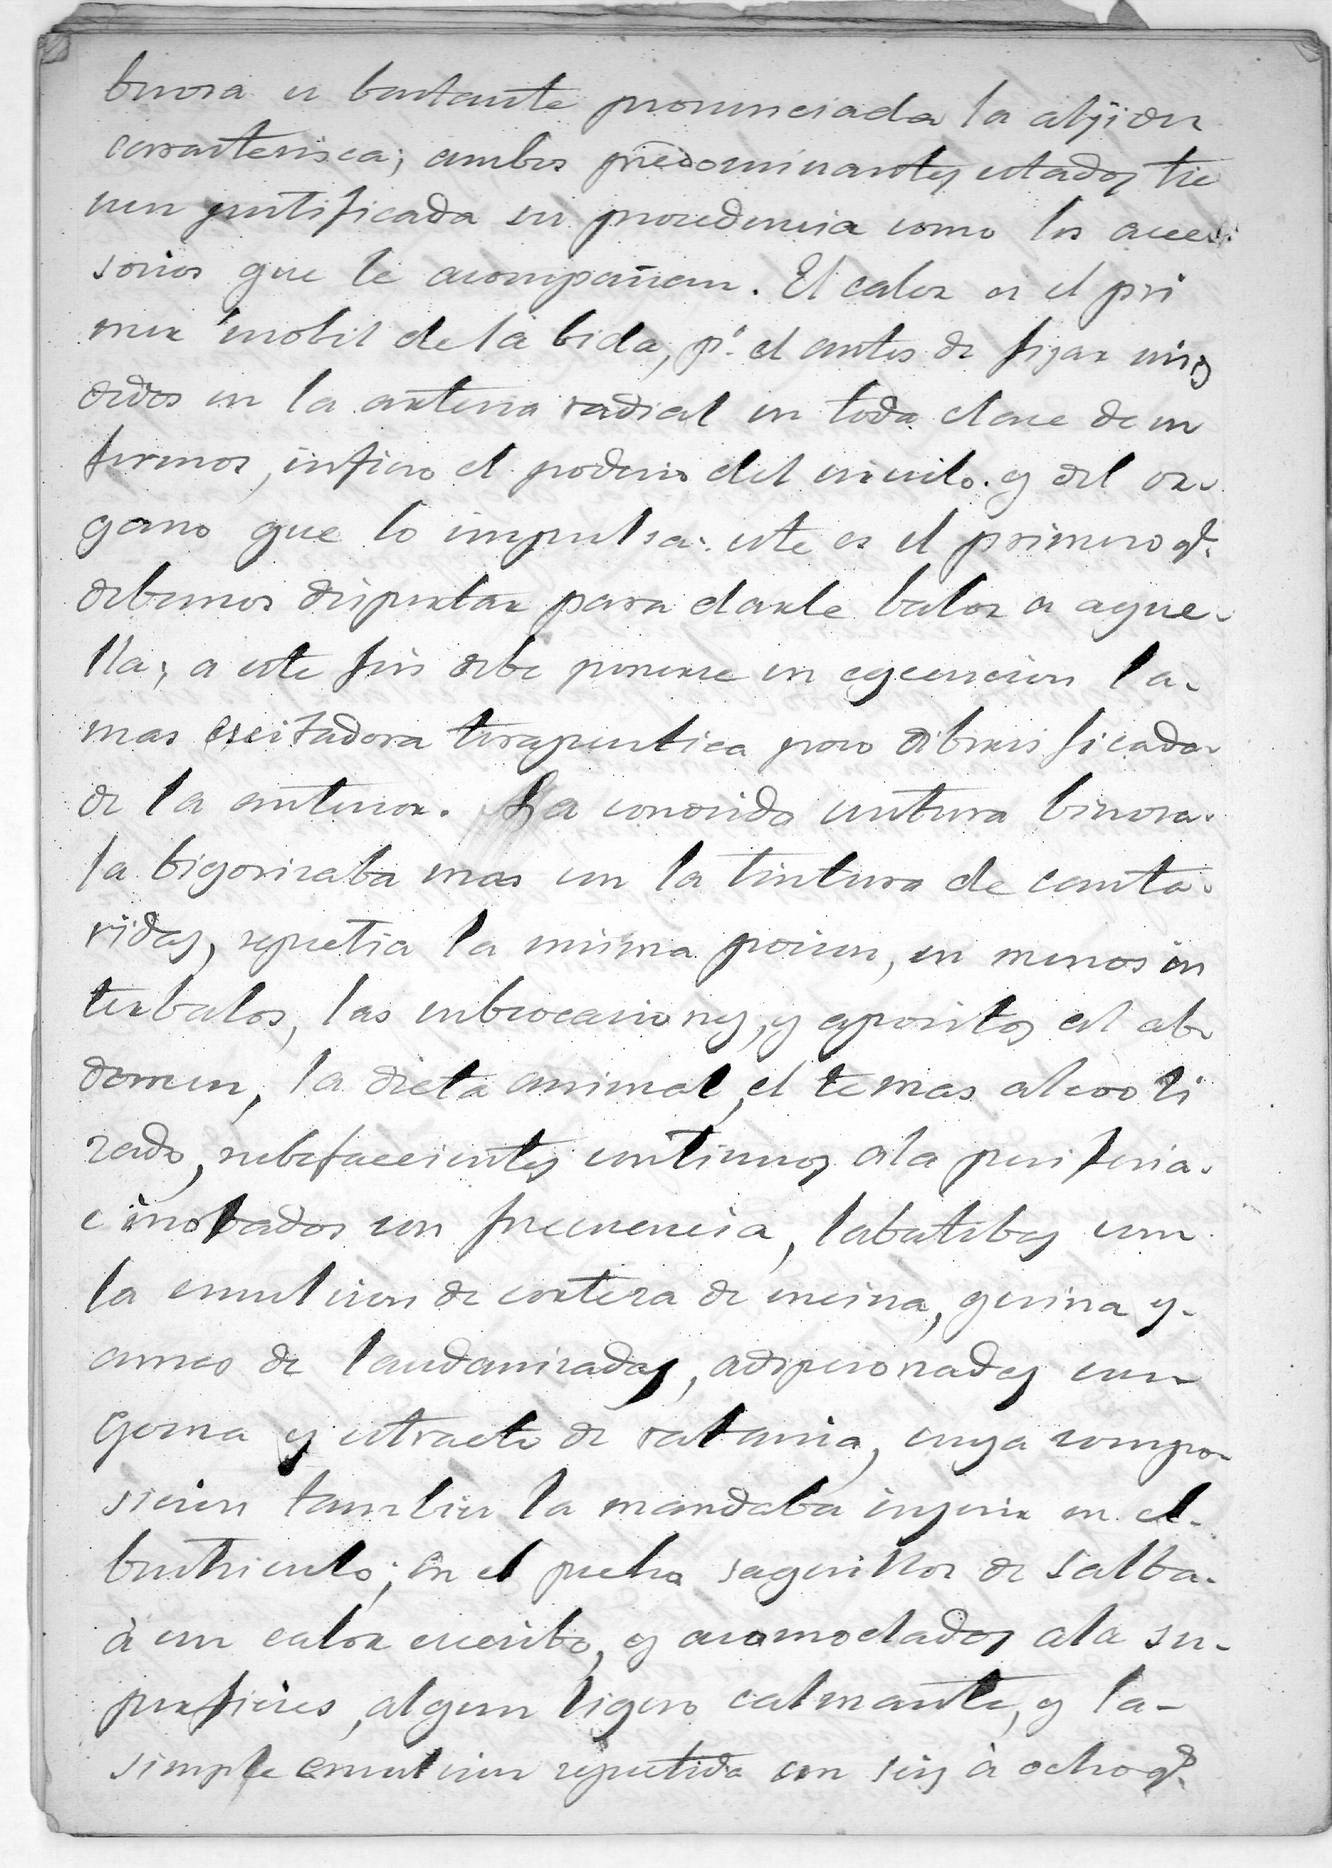 binosa es bastante pronunciada la aljider
caracterisca; ambos predominantes estados tie
nen justificada su procedencia como los acce
sorios que le acompañan. El calor es el pri
mer mobil de la bida, pr. el antes de fijar mis
dedos en la arteria radial en toda clase de en
fermos, infiero el poderio del circulo y del or-
gano que lo impulsa: este es el primero qe.
debemos dispertar para darle balor a aque-
lla; a este fin debe ponerse en egecucion la-
mas escitadora terapeutica pero dibersificada
de la anterior. La conosida untura binosa.
la bigorizaba mas con la tintura de canta-
ridas, repetia la misma pocion, en menos in
terbalos, las enbrocaciones, y apositos al ab-
domen, la dieta animal, el te mas alcooli
zado, rubefacientes continuos a la periferia.
e inobados con frecuencia, labatibas con
la emulcion de corteza de encina, quina y-
arnes de laudanizadas, adicionadas con
Goma y estracto de ratania, cuya compo-
sicion tambien la mandaba injerir en el-
bentriculo; en el pecho saquillos de salba-
à un calor excesibo, y acomodados a la su-
perficies, algun ligero calmante, y la-
simple emulcion repetida con seis à ocho qe.